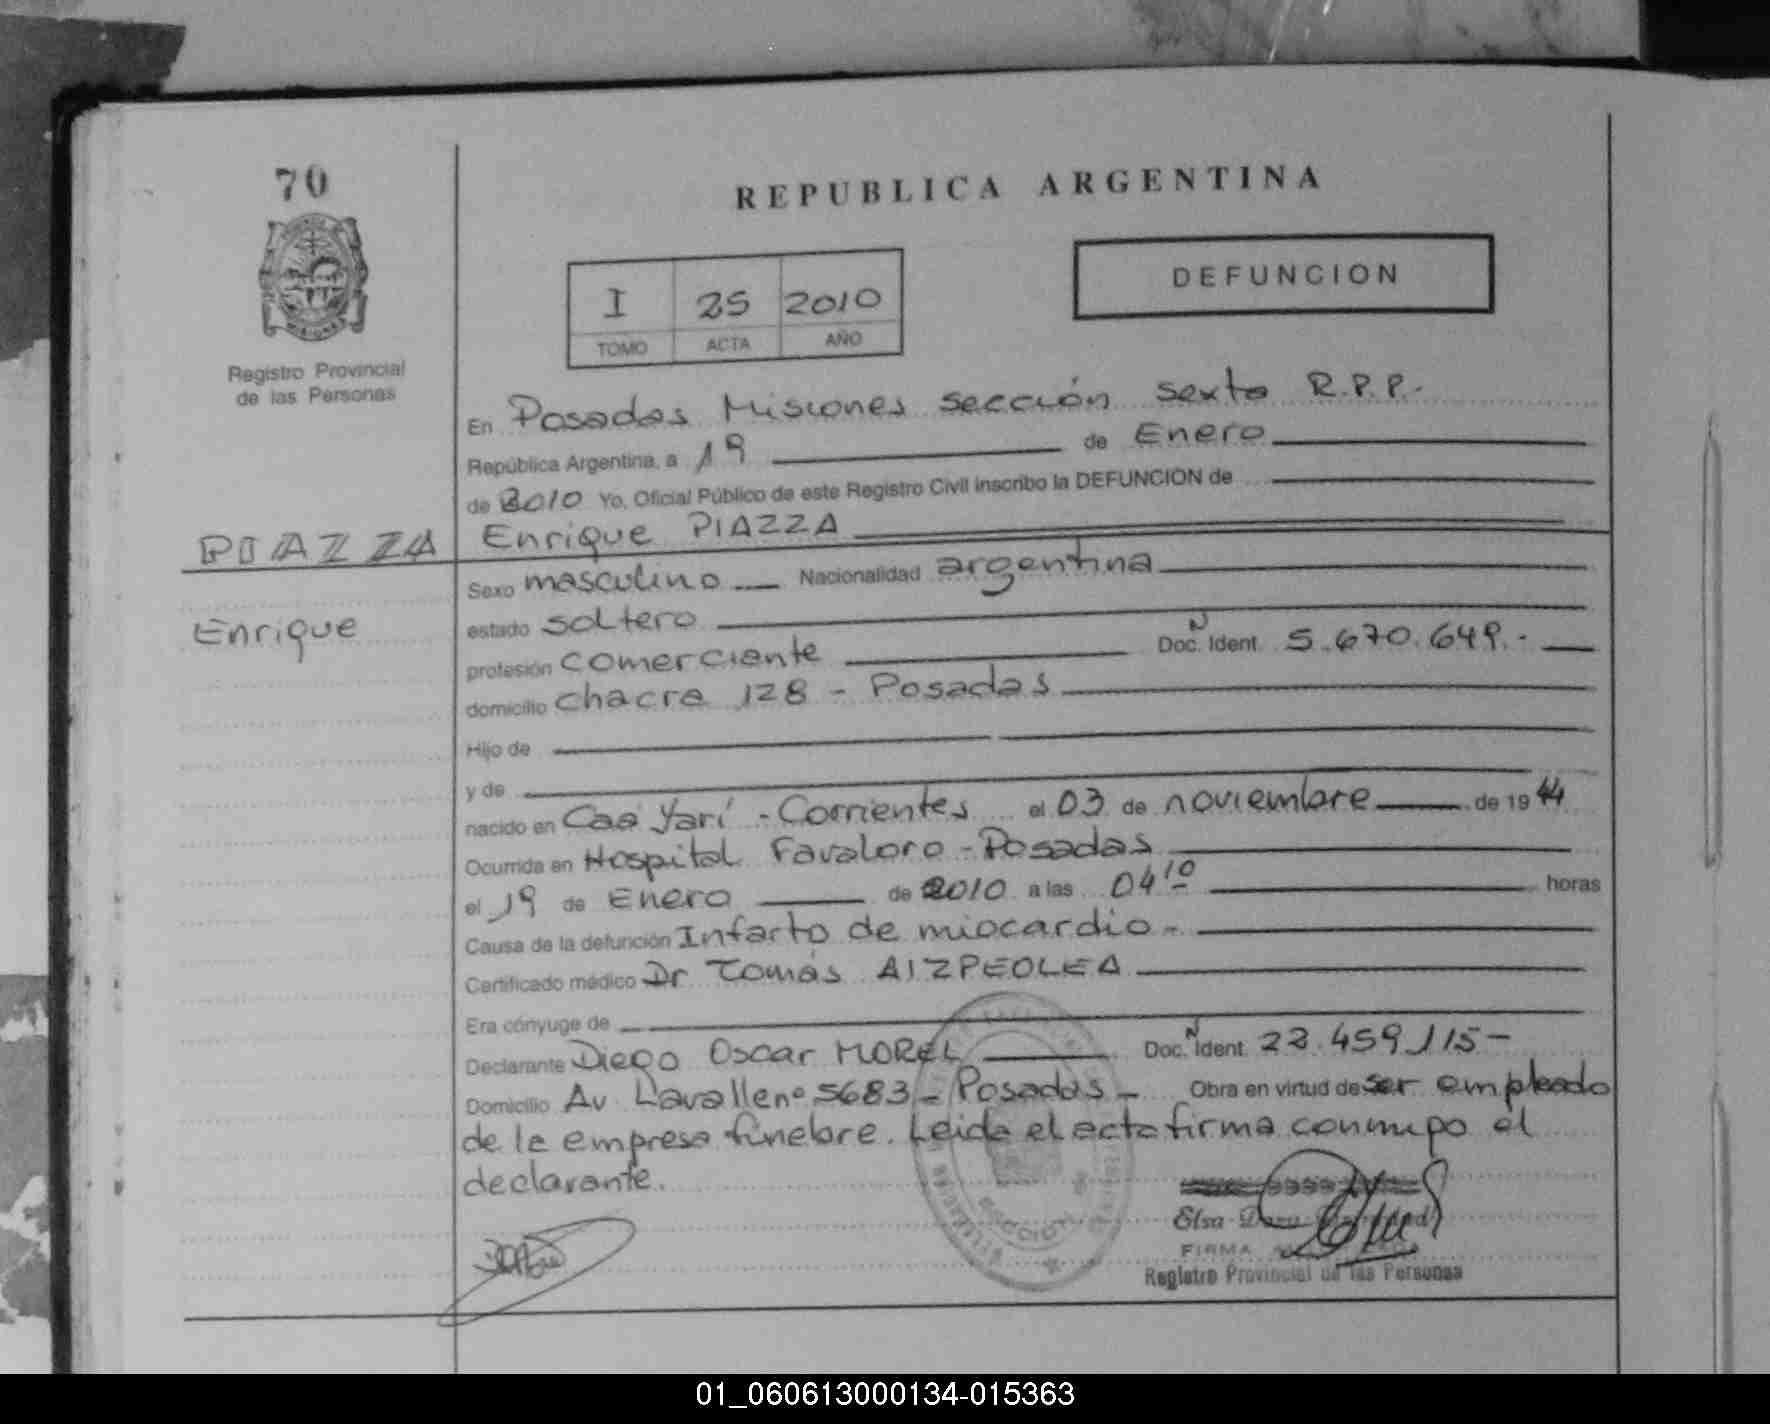 70
REPUBLICA ARGENTINA
I 25 2010
TOMO ACTA AÑO
DEFUNCION
MISIONES
Registro Provincial
de las Personas
En Posadas Misiones sección sexta R.P.P.-
República Argentina, a 19 de Enero
de 2010 Yo, Oficial Público de este Registro Civil inscribo la DEFUNCION de
PIAZZA
Enrique PIAZZA
Sexo masculino Nacionalidad argentina
Enrique
estado soltero
profesión comerciante Doc. N Ident. 5.670.649.-
domicilio chacra 128 - Posadas
Hijo de
y de
nacido en Caá Yarí - Corrientes el 03 de noviembre de 1944
Ocurrida en Hospital Favaloro - Posadas
el 19 de Enero de 2010 a las 04 10 horas
Causa de la defunción Infarto de miocardio.-
Certificado médico Dr Tomás AIZPEOLEA
Era cónyuge de
Declarante Diego Oscar MOREL Doc. N Ident. 22.459.115-
Domicilio Av Lavalle nº 5683 - Posadas - Obra en virtud de ser empleado
de la empresa fúnebre. Leida el acta firma conmigo el
declarante.
Elsa
FIRMA
Registro Provincial de las Personas
01_060613000134-015363